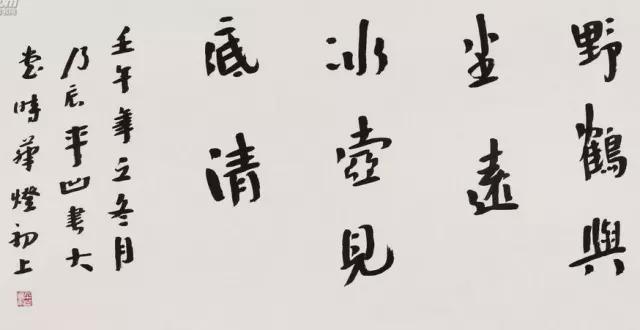 野鶴與
尘遠
冰壺見
底清
壬午年立冬月
乃平凹書大
堂時華燈初上